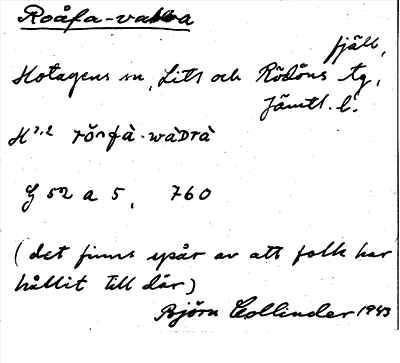 Roåfa-vabba
fjäll,
Hotagens sn, Lits och Rödöns tg,
Jämtl. l.
H 3,2 rŏnfà-wàDrà
G 52 a 5, 760
(det finns spår av att folk har
hållit till där)
Björn Collinder 1943